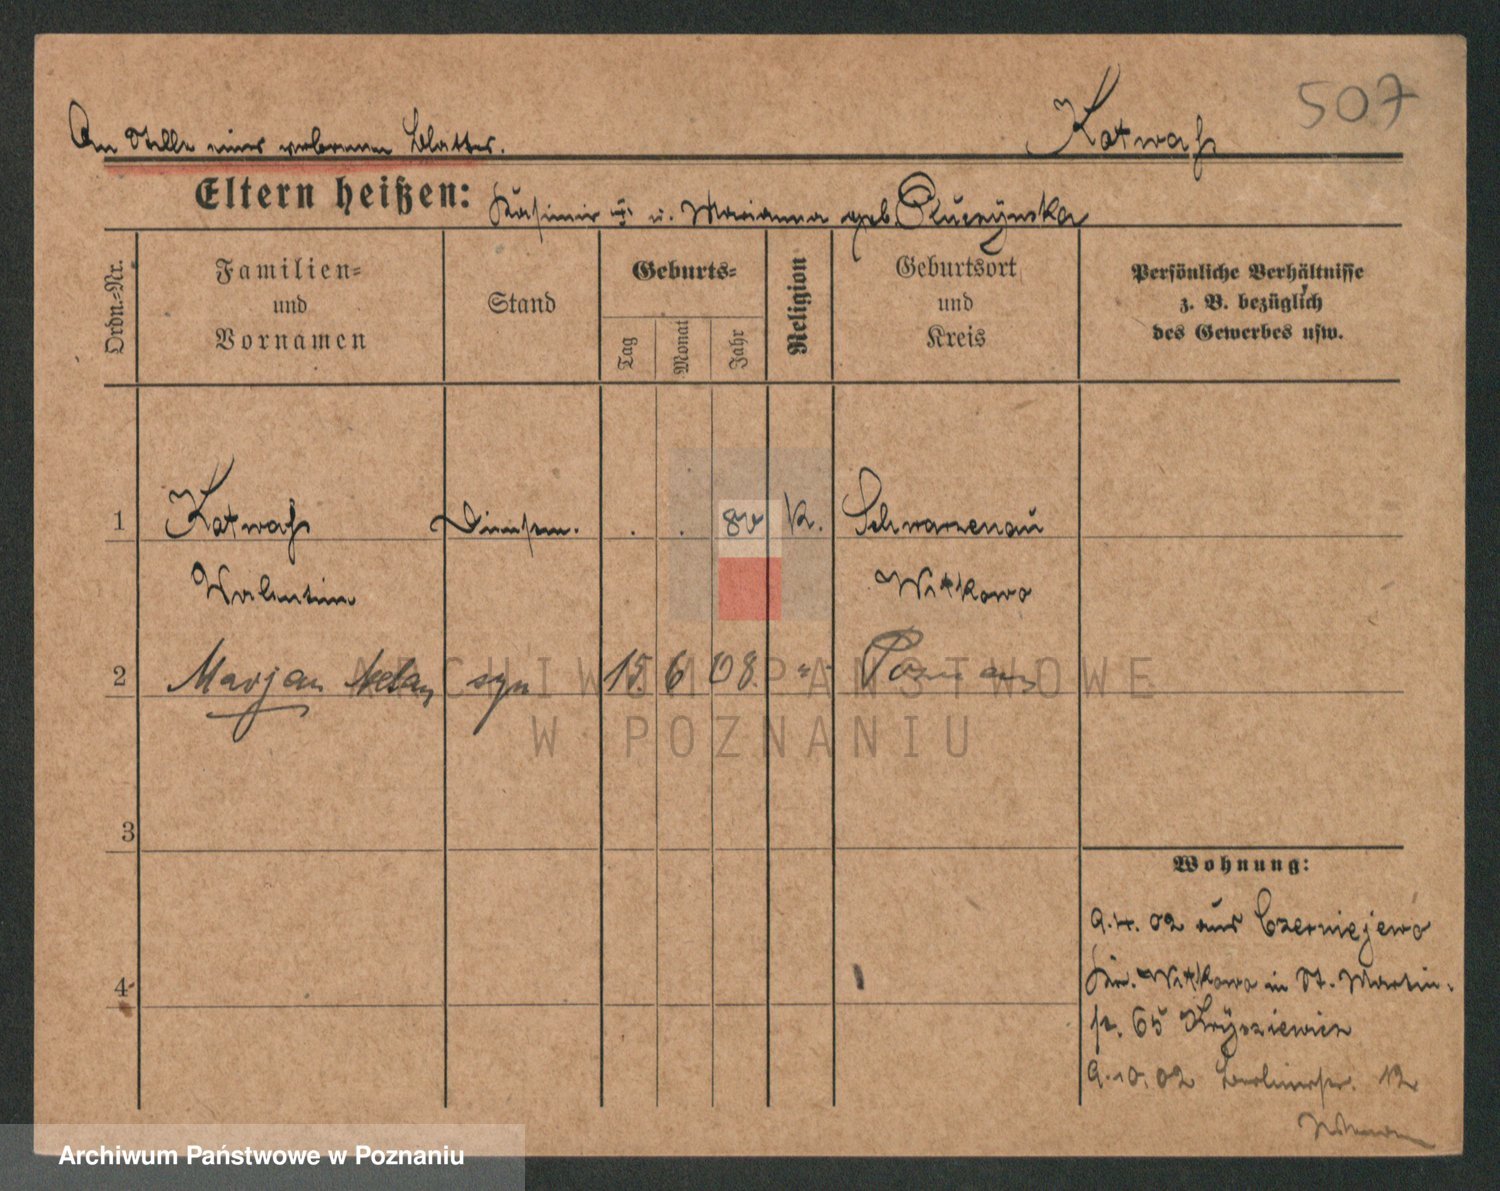 507
An Stelle eines verlorenen Blattes.
Eltern heißen: Kasimir u. Marianna geb.
Ordn.=Nr.
Familien=
und
Vornamen
Stand
Geburts=
Tag
Monat
Jahr
Religion
Geburtsort
und
Kreis
Persönliche Verhältnisse
z. B. bezüglich
des Gewerbes usw.
1
. . k. Schwarzenau
Valentin Witkowo
2 Marjan syn 15. 6 08. "
3
4
Wohnung:
9.4.02 aus Czerniejewo
Kr. Witkowo in St. Martin-
str. 65
9.10.02 Berlinerstr.
ARCHIWUM PAŃSTWOWE
W POZNANIU
Archiwum Państwowe w Poznaniu